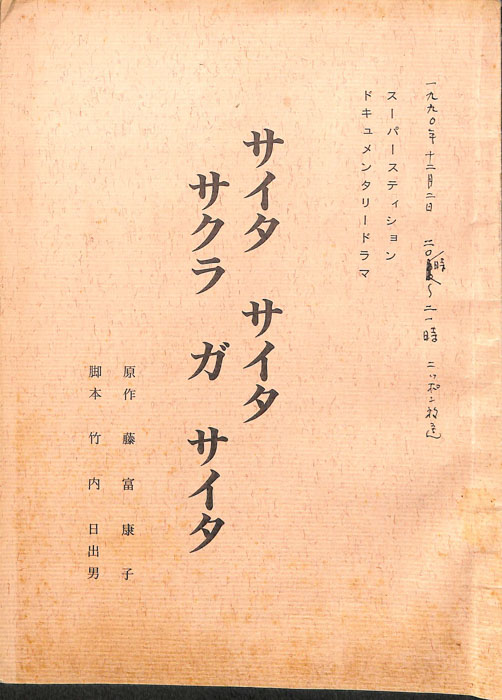 一九九〇年十二月二日 二〇時〜二一時 ニッポン放送
スーパースティション
ドキュメンタリードラマ
サイタ サイタ
サクラ ガ サイタ
原作 藤富康子
脚本 竹内日出男